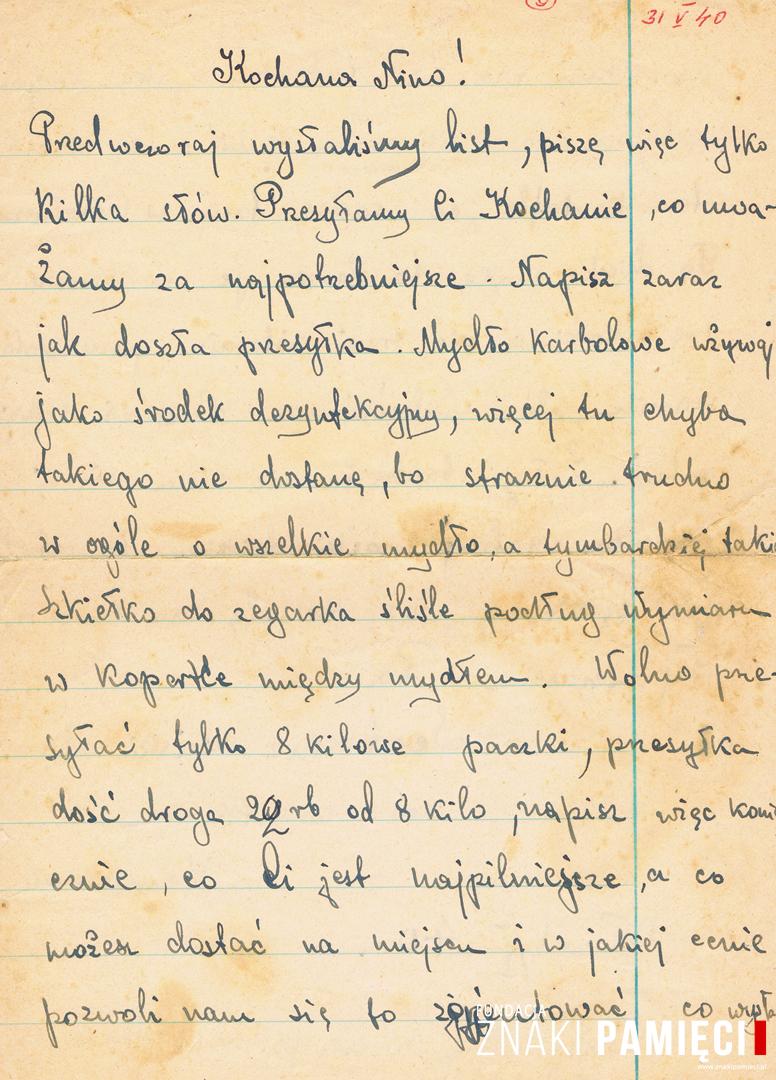 31 V 40
Kochana Nino!
Przedwczoraj wysłaliśmy list, piszę więc tylko
kilka słów. Przesyłamy Ci Kochanie, co uwa-
żamy za najpotrzebniejsze. Napisz zaraz
jak doszła przesyłka. Mydło karbolowe używaj
jako środek dezynfekcyjny, więcej tu chyba
takiego nie dostanę, bo strasznie trudno
w ogóle o wszelkie mydło, a tymbardziej takie
Szkiełko do zegarka ściśle podług wymiaru
w kopercie między mydłem. Wolno prze-
syłać tylko 8 kilowe paczki, przesyłka
dość droga rb od 8 kilo, napisz więc koni
ecznie, co Ci jest najpilniejsze, a co
możesz dostać na miejscu i w jakiej cenie
pozwoli nam się to co
FUNDACJA
ZNAKI PAMIĘCI
www.znakipamieci.pl